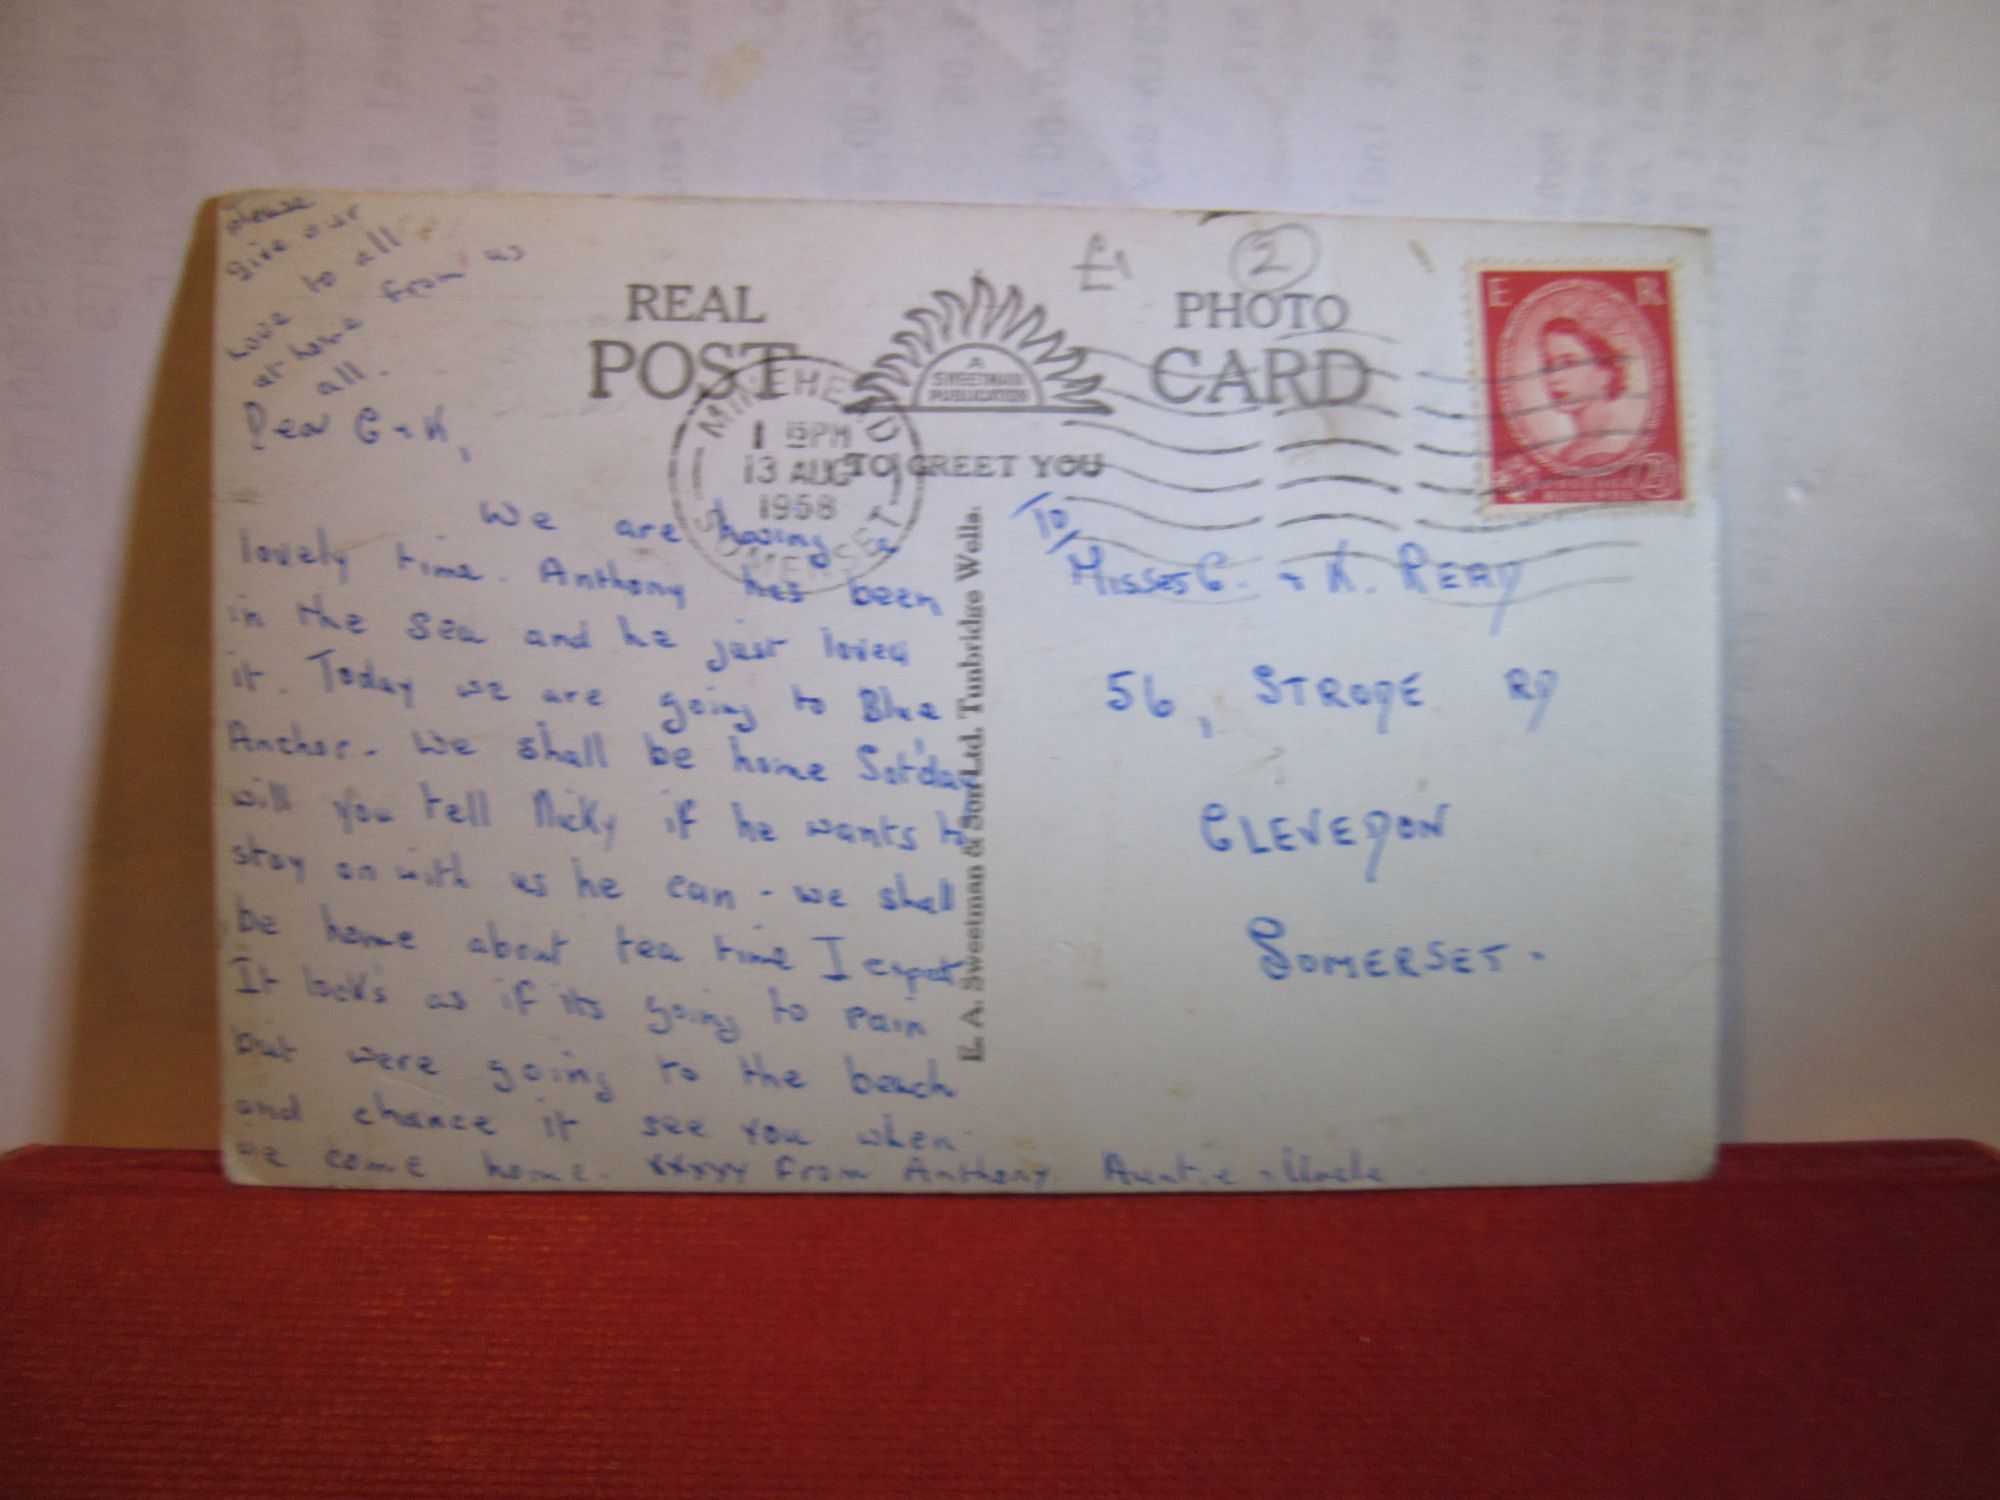 Please
give our
love to all
at home from us
all.
Dear G & K,
We are having a
lovely time. Anthony has been
in the sea and he just loved
it. Today we are going to Blue
Anchor. We shall be home Sat'day
will you tell Nicky if he wants to
stay on with us he can - we shall
be home about tea time I expect
It looks as if its going to rain
but were going to the beach
and chance it see you when
we come home. xxxxx from Anthony. Auntie & Uncle
REAL PHOTO
POST CARD
A
SWEETMAN
PUBLICATION
TO GREET YOU
MINEHEAD
1 15 PM
13 AUG
1958
SOMERSET
E. A. Sweetman & Son Ltd. Tunbridge Wells.
£1
2
E R
2½
To/
Misses G. & K. READ
56, STRODE RD
CLEVEDON
SOMERSET.